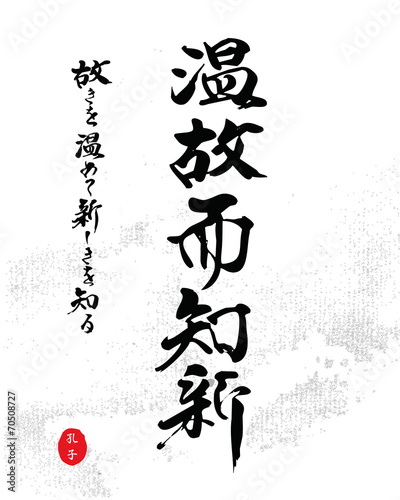 温故而知新
故きを温めて新しきを知る
孔子
Adobe Stock | #70508727